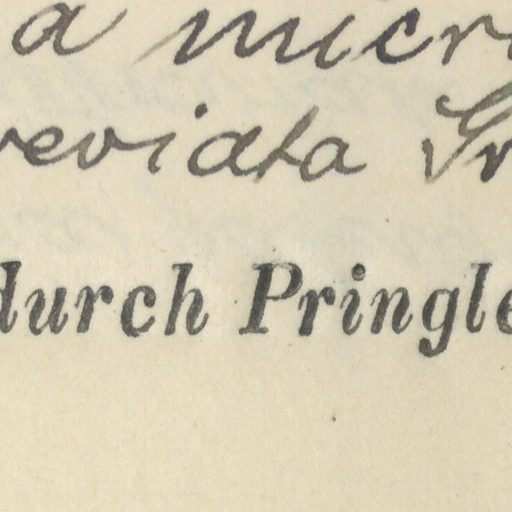 a micr
reviata Gr
durch Pringle